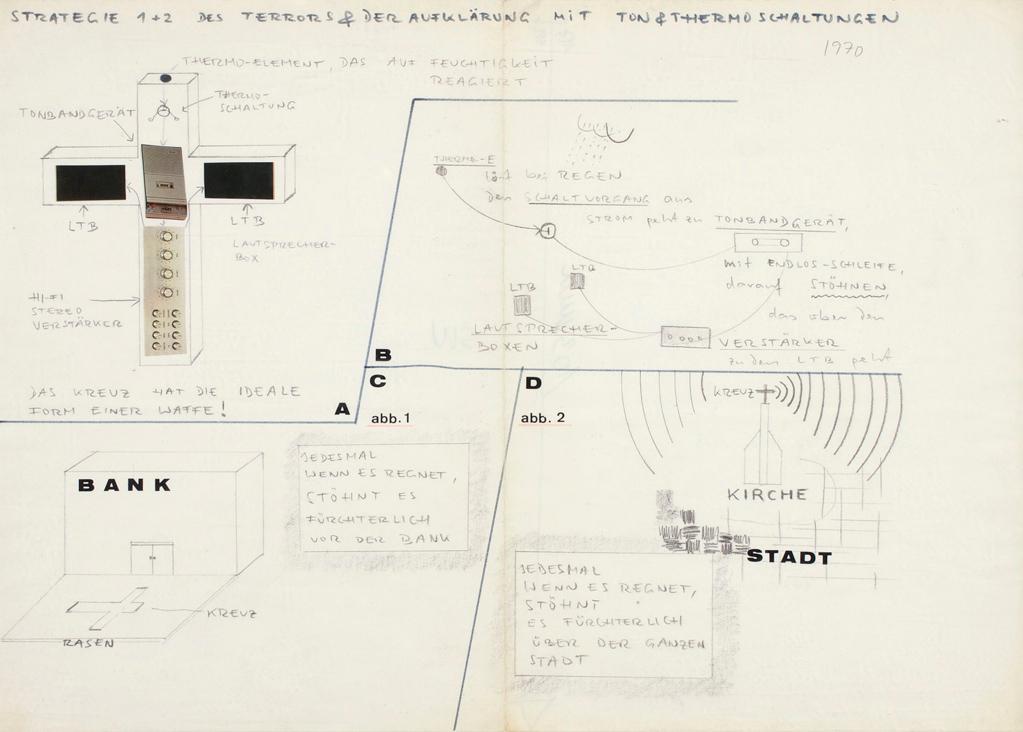 STRATEGIE 1+2 DES TERRORS & DER AUFKLÄRUNG MIT TON & THERMOSCHALTUNGEN
1970
THERMO-ELEMENT, DAS AUF FEUCHTIGKEIT
REAGIERT
THERMO-
SCHALTUNG
TONBANDGERÄT
LTB
LTB
LAUTSPRECHER-
BOX
HI-FI
STEREO
VERSTÄRKER
DAS KREUZ HAT DIE IDEALE
FORM EINER WAFFE!
A
THERMO-E
löst bei REGEN
den SCHALTVORGANG aus
STROM geht zu TONBANDGERÄT,
mit ENDLOS-SCHLEIFE,
darauf STÖHNEN,
das über den
VERSTÄRKER
zu den LTB geht
LTB
LTB
LAUTSPRECHER-
BOXEN
B
C
abb.1
BANK
JEDESMAL
WENN ES REGNET,
STÖHNT ES
FÜRCHTERLICH
VOR DER BANK
KREUZ
RASEN
D
abb.2
KREUZ
KIRCHE
STADT
JEDESMAL
WENN ES REGNET,
STÖHNT
ES FÜRCHTERLICH
ÜBER DER GANZEN
STADT